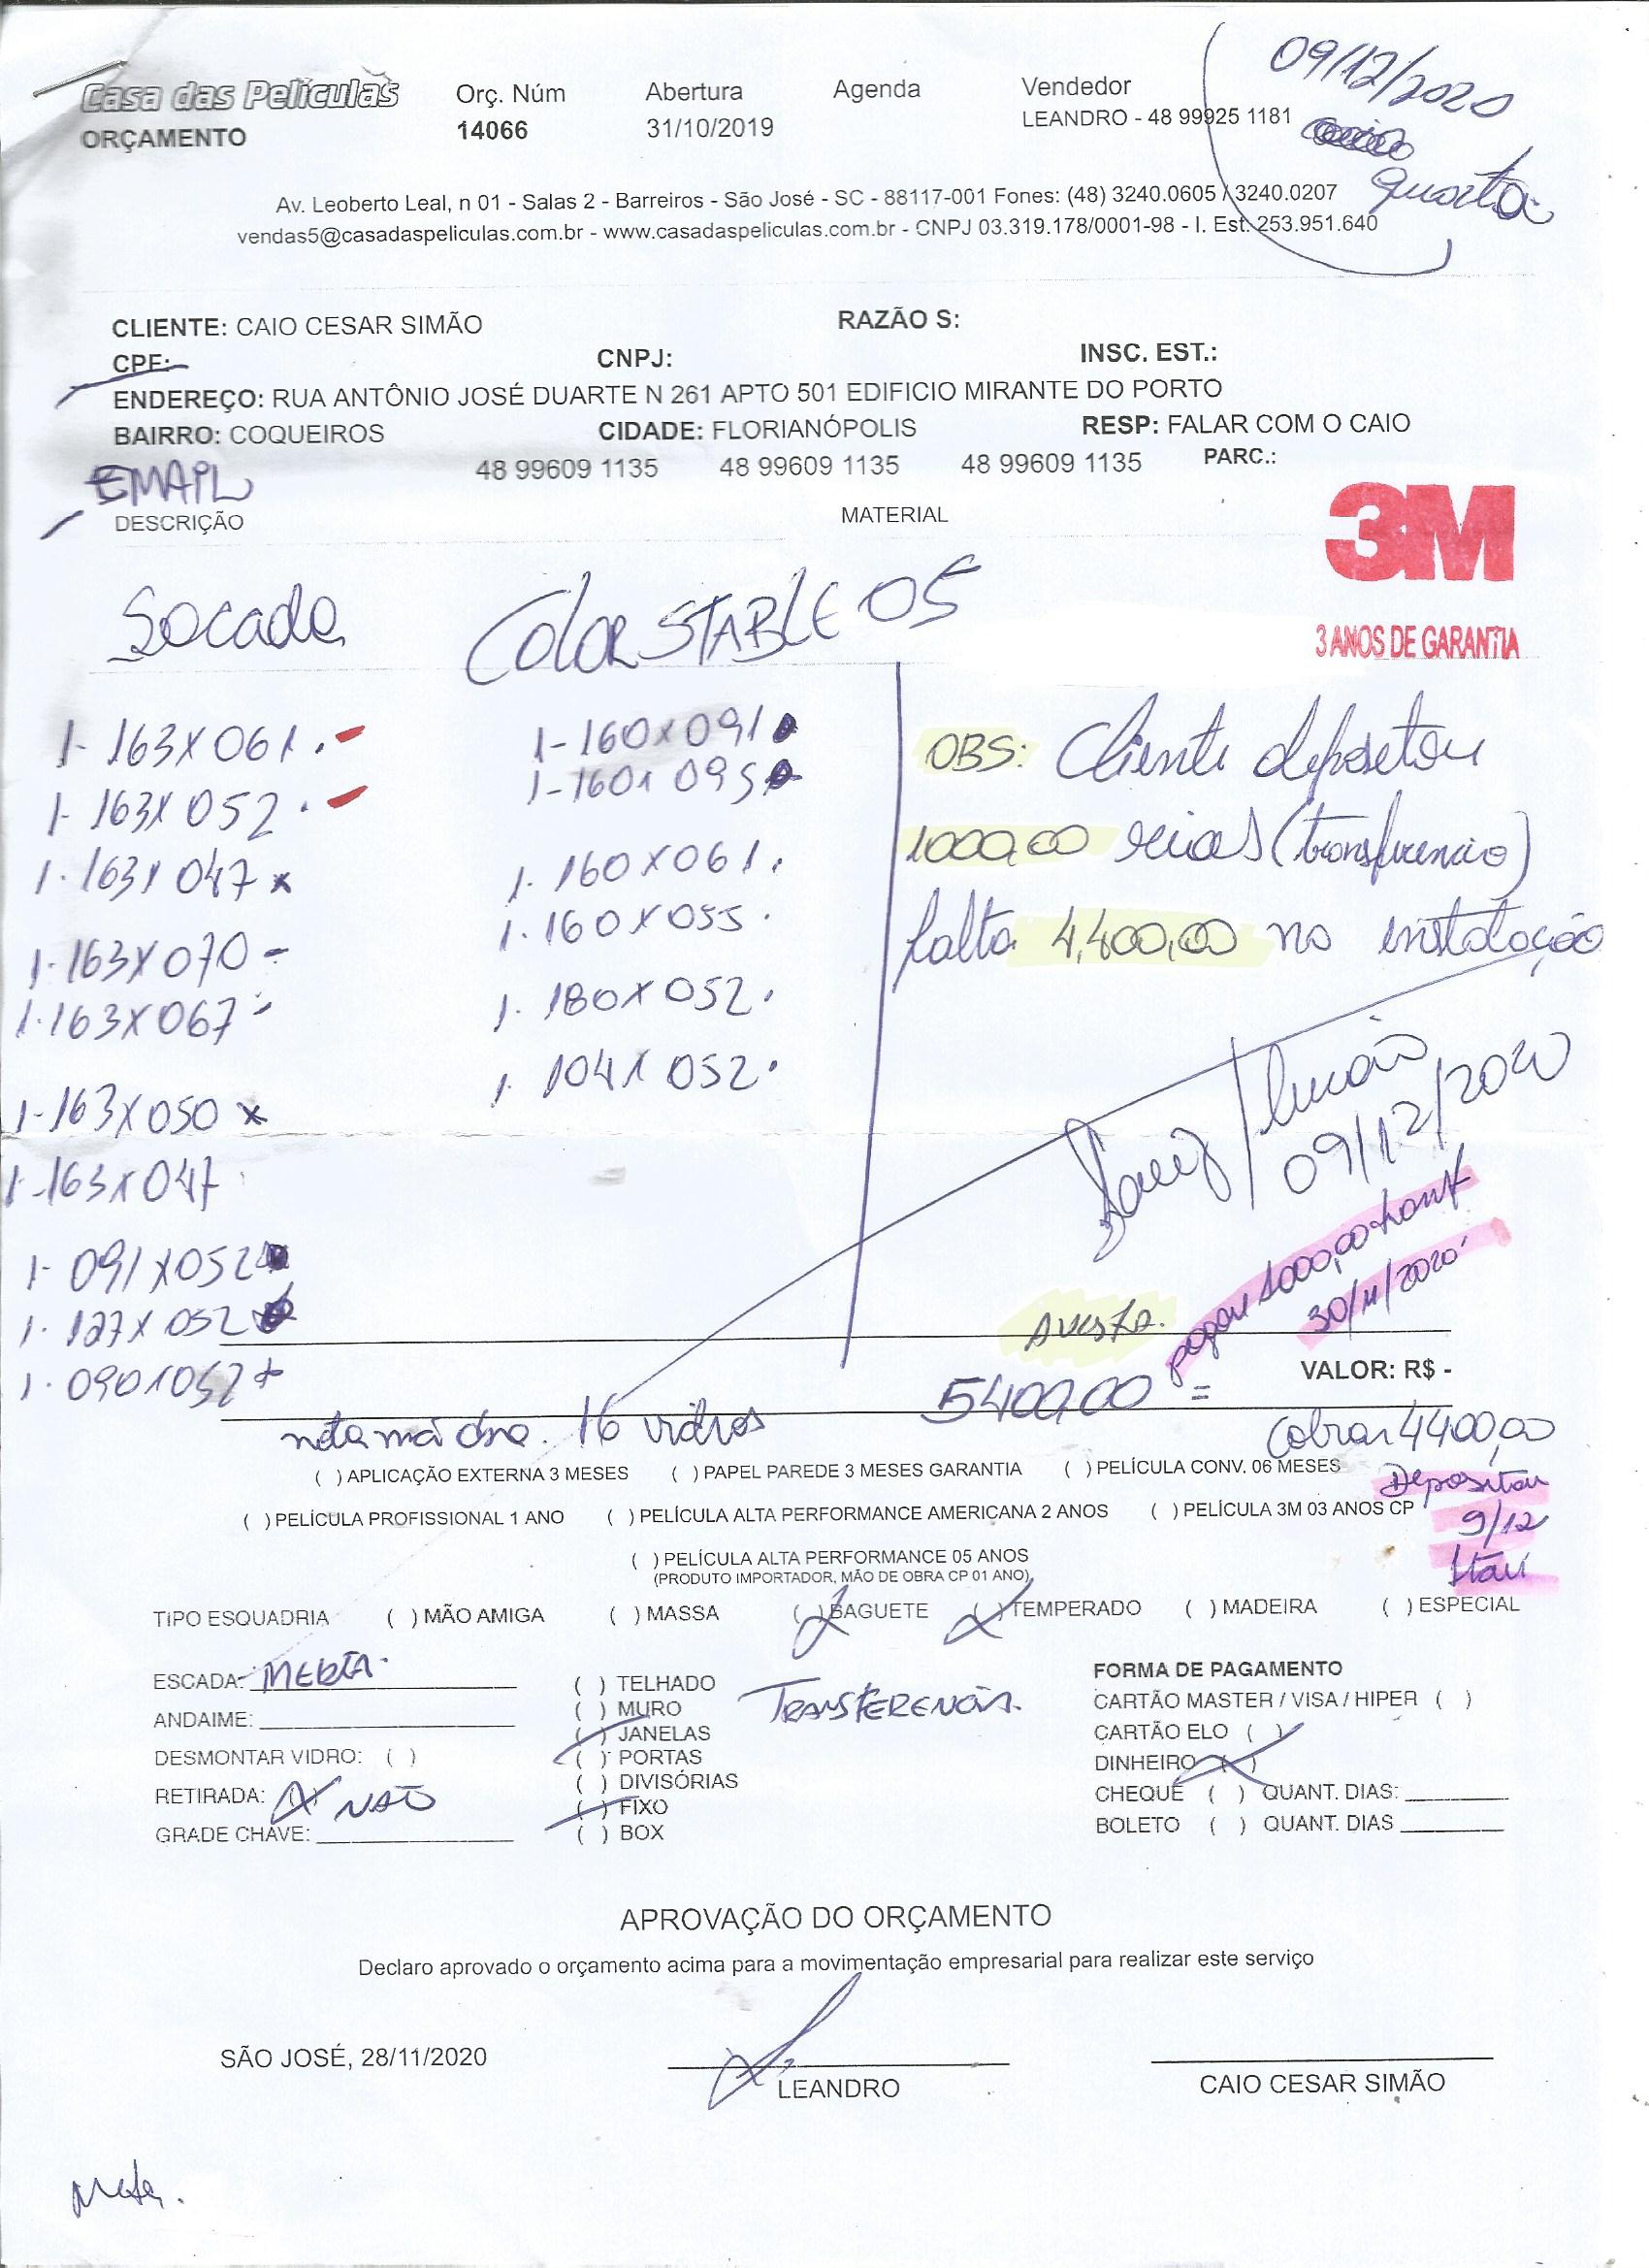 Casa das Películas Orç. Núm Abertura Agenda Vendedor 09/12/2020
ORÇAMENTO 14066 31/10/2019 LEANDRO - 48 99925 1181
quarta
Av. Leoberto Leal, n 01 - Salas 2 - Barreiros - São José - SC - 88117-001 Fones: (48) 3240.0605 / 3240.0207
vendas5@casadaspeliculas.com.br - www.casadaspeliculas.com.br - CNPJ 03.319.178/0001-98 - I. Est. 253.951.640
CLIENTE: CAIO CESAR SIMÃO RAZÃO S:
CPF: CNPJ: INSC. EST.:
ENDEREÇO: RUA ANTÔNIO JOSÉ DUARTE N 261 APTO 501 EDIFICIO MIRANTE DO PORTO
BAIRRO: COQUEIROS CIDADE: FLORIANÓPOLIS RESP: FALAR COM O CAIO
EMAIL 48 99609 1135 48 99609 1135 48 99609 1135 PARC.:
DESCRIÇÃO MATERIAL
3M
3 ANOS DE GARANTIA
Socada COLOR STABLE 05
1- 163X061. - 1-160X091
1- 163X052. - 1-160X095
1. 163X047 x 1. 160X061.
1. 160X055.
1-163X070 -
1. 163X067 1. 180X052.
1. 104X052.
1-163X050 x
1-163X047
1- 091X052
1. 127X052
1. 090X052
OBS: Cliente depositou
1000,00 reias (transferencia)
falta 4,400,00 na instalação
09/12/2020
pagou 1000,00 transf
30/11/2020
AVISTA.
VALOR: R$ -
5400,00 =
16 vidros
Cobrar 4400,00
( ) APLICAÇÃO EXTERNA 3 MESES ( ) PAPEL PAREDE 3 MESES GARANTIA ( ) PELÍCULA CONV. 06 MESES
Depositou
( ) PELÍCULA PROFISSIONAL 1 ANO ( ) PELÍCULA ALTA PERFORMANCE AMERICANA 2 ANOS ( ) PELÍCULA 3M 03 ANOS CP
9/12
( ) PELÍCULA ALTA PERFORMANCE 05 ANOS
(PRODUTO IMPORTADOR, MÃO DE OBRA CP 01 ANO)
Itaú
TIPO ESQUADRIA ( ) MÃO AMIGA ( ) MASSA ( ) BAGUETE ( ) TEMPERADO ( ) MADEIRA ( ) ESPECIAL
ESCADA: MEDIA.
ANDAIME:
DESMONTAR VIDRO: ( )
RETIRADA: (X) NAO
GRADE CHAVE:
( ) TELHADO
( ) MURO
( ) JANELAS
( ) PORTAS
( ) DIVISÓRIAS
( ) FIXO
( ) BOX
TRANSFERENCIA.
FORMA DE PAGAMENTO
CARTÃO MASTER / VISA / HIPER ( )
CARTÃO ELO ( )
DINHEIRO ( )
CHEQUE ( ) QUANT. DIAS:
BOLETO ( ) QUANT. DIAS
APROVAÇÃO DO ORÇAMENTO
Declaro aprovado o orçamento acima para a movimentação empresarial para realizar este serviço
SÃO JOSÉ, 28/11/2020
LEANDRO CAIO CESAR SIMÃO
Nota.